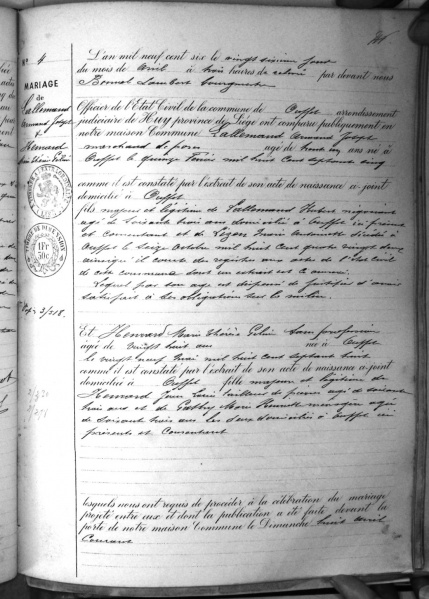 N° 4
MARIAGE
de
Lallemand
Armand Joseph
et
Henrard
Marie Thérèse
1 Fr
50c
L'an mil neuf cent six le vingt sixième jour
du mois de avril à trois heures de relevée par devant nous
Lambert
Officier de l'État Civil de la commune de Ouffet arrondissement
judiciaire de Huy province de Liège ont comparu publiquement en
notre maison Commune Lallemand Armand Joseph
marchand de âgé de trente un ans né à
Ouffet le quinze mil huit cent septante cinq
comme il est constaté par l'extrait de son acte de naissance ci-joint
domicilié à Ouffet
fils majeur et légitime de Lallemand Hubert négociant
âgé de soixante trois ans domicilié à Ouffet ici présent
et consentant et de Marie Antoinette décédée à
Ouffet le seize Octobre mil huit cent quatre vingt
ainsi qu'il conste du registre aux actes de l'État civil
de cette commune dont un extrait est ci annexé
Lequel par son âge est dispensé de justifier d'avoir
satisfait à ses obligations sur la milice
Et Henrard Marie Thérèse sans profession
âgée de vingt huit ans née à Ouffet
le vingt neuf mil huit cent septante huit
comme il est constaté par l'extrait de son acte de naissance ci-joint
domiciliée à Ouffet fille majeure et légitime de
Henrard Jean Louis tailleur de pierres âgé de soixante
trois ans et de Marie ménagère âgée
de soixante trois ans les deux domiciliés à Ouffet ici
présents et consentant
lesquels nous ont requis de procéder à la célébration du mariage
projeté entre eux et dont la publication a été faite devant la
porte de notre maison Commune le Dimanche huit avril
Courant